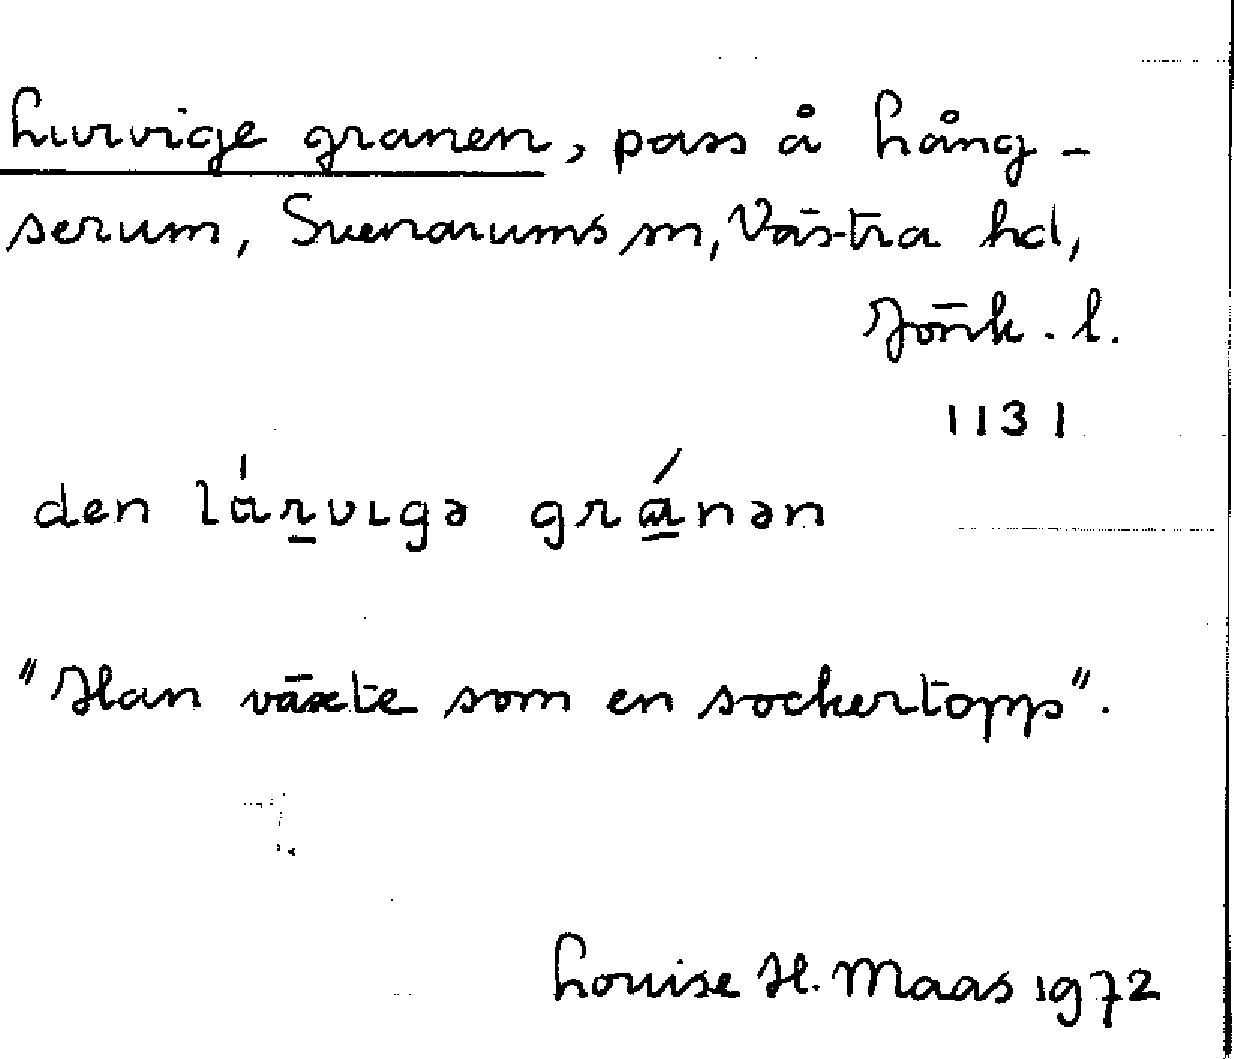 Lurvige granen, pass å Lång-
serum, Svenarums sn, Västra hd,
Jönk. l.
1131
den lɑ́r̲vɩgə grɑ̲́nən
"Han växte som en sockertopp".
Louise H. Maas 1972